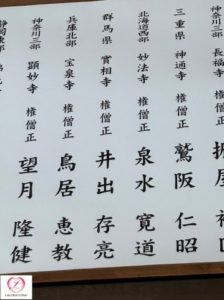 神奈川三部 長福寺 権僧正
三重県 神通寺 権僧正 鷲阪 仁昭
北海道西部 妙法寺 権僧正 泉水 寛道
群馬県 實相寺 権僧正 井出 存亮
兵庫北部 宝泉寺 権僧正 鳥居 恵教
神奈川三部 顕妙寺 権僧正 望月 隆健